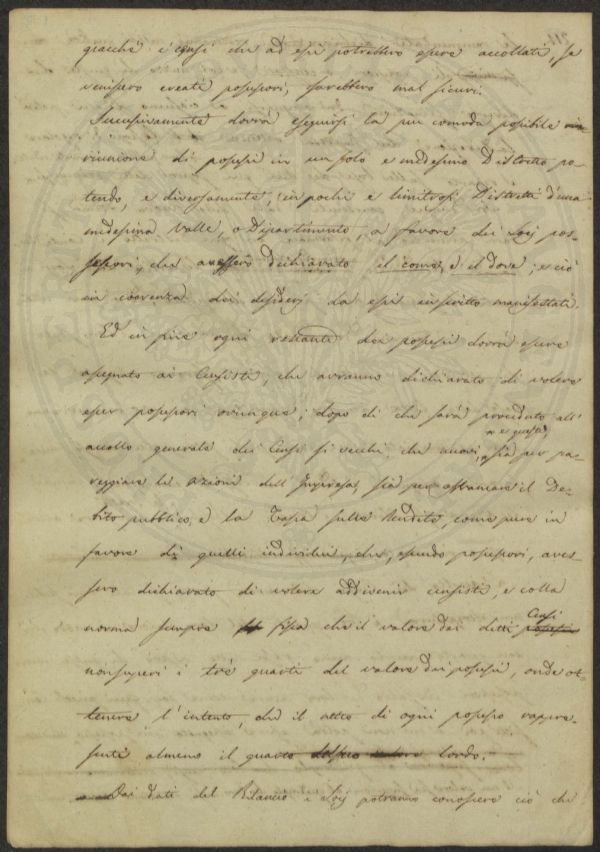 giacchè i censi che ad essi potrebbero essere accollati, se
venissero creati possessori, sarebbero mal sicuri.
Successivamente dovrà eseguirsi la più comoda possibile
riunione di possessi in un solo e medesimo Distretto po-
tendo, e diversamente, in pochi e limitrofi Distretti d'una
medesima Valle, o Dipartimento, a favore dei Socj pos-
sessori, che avessero dichiarato il come, e il dove; e ciò
in coerenza dei desiderj da essi in scritto manifestati.
Ed in fine ogni restante dei possessi dovrà essere
assegnato ai Censisti, che avranno dichiarato di volere
esser possessori ovunque; dopo di che sarà proceduto all'
accollo generale dei Censi sì vecchi, che nuovi, e questi
sia per pa-
reggiare le azioni dell'Impresa, sia per affrancare il De-
bito pubblico, e la Tassa sulle Rendite, come pure in
favore di quelli individui, che, essendo possessori, aves-
sero dichiarato di volere addivenir censisti, e colla
norma sempre fissa che il valore dei detti Censi
non superi i trè quarti del valore dei possessi, onde ot-
tenere l'intento, che il netto di ogni possesso rappre-
senti almeno il quarto del suo valore lordo.
Dai dati del Bilancio i Socj potranno conoscere ciò che